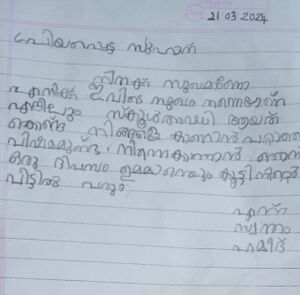 21 03 2024
പ്രിയപ്പെട്ട സുഹാന
നിനക്ക് സുഖമാണോ
എനിക്ക് ഇവിടെ സുഖം തന്നെയാണ്
എങ്കിലും സ്കൂൾ അവധി ആയത്
കൊണ്ട് നിങ്ങളെ കാണാൻ പറ്റാത്ത
വിഷമമുണ്ട്. നിന്നെ കാണാൻ ഞാൻ
ഒരു ദിവസം ഉമ്മയെയും കൂട്ടി നിന്റെ
വീട്ടിൽ വരും
എന്ന്
സ്വന്തം